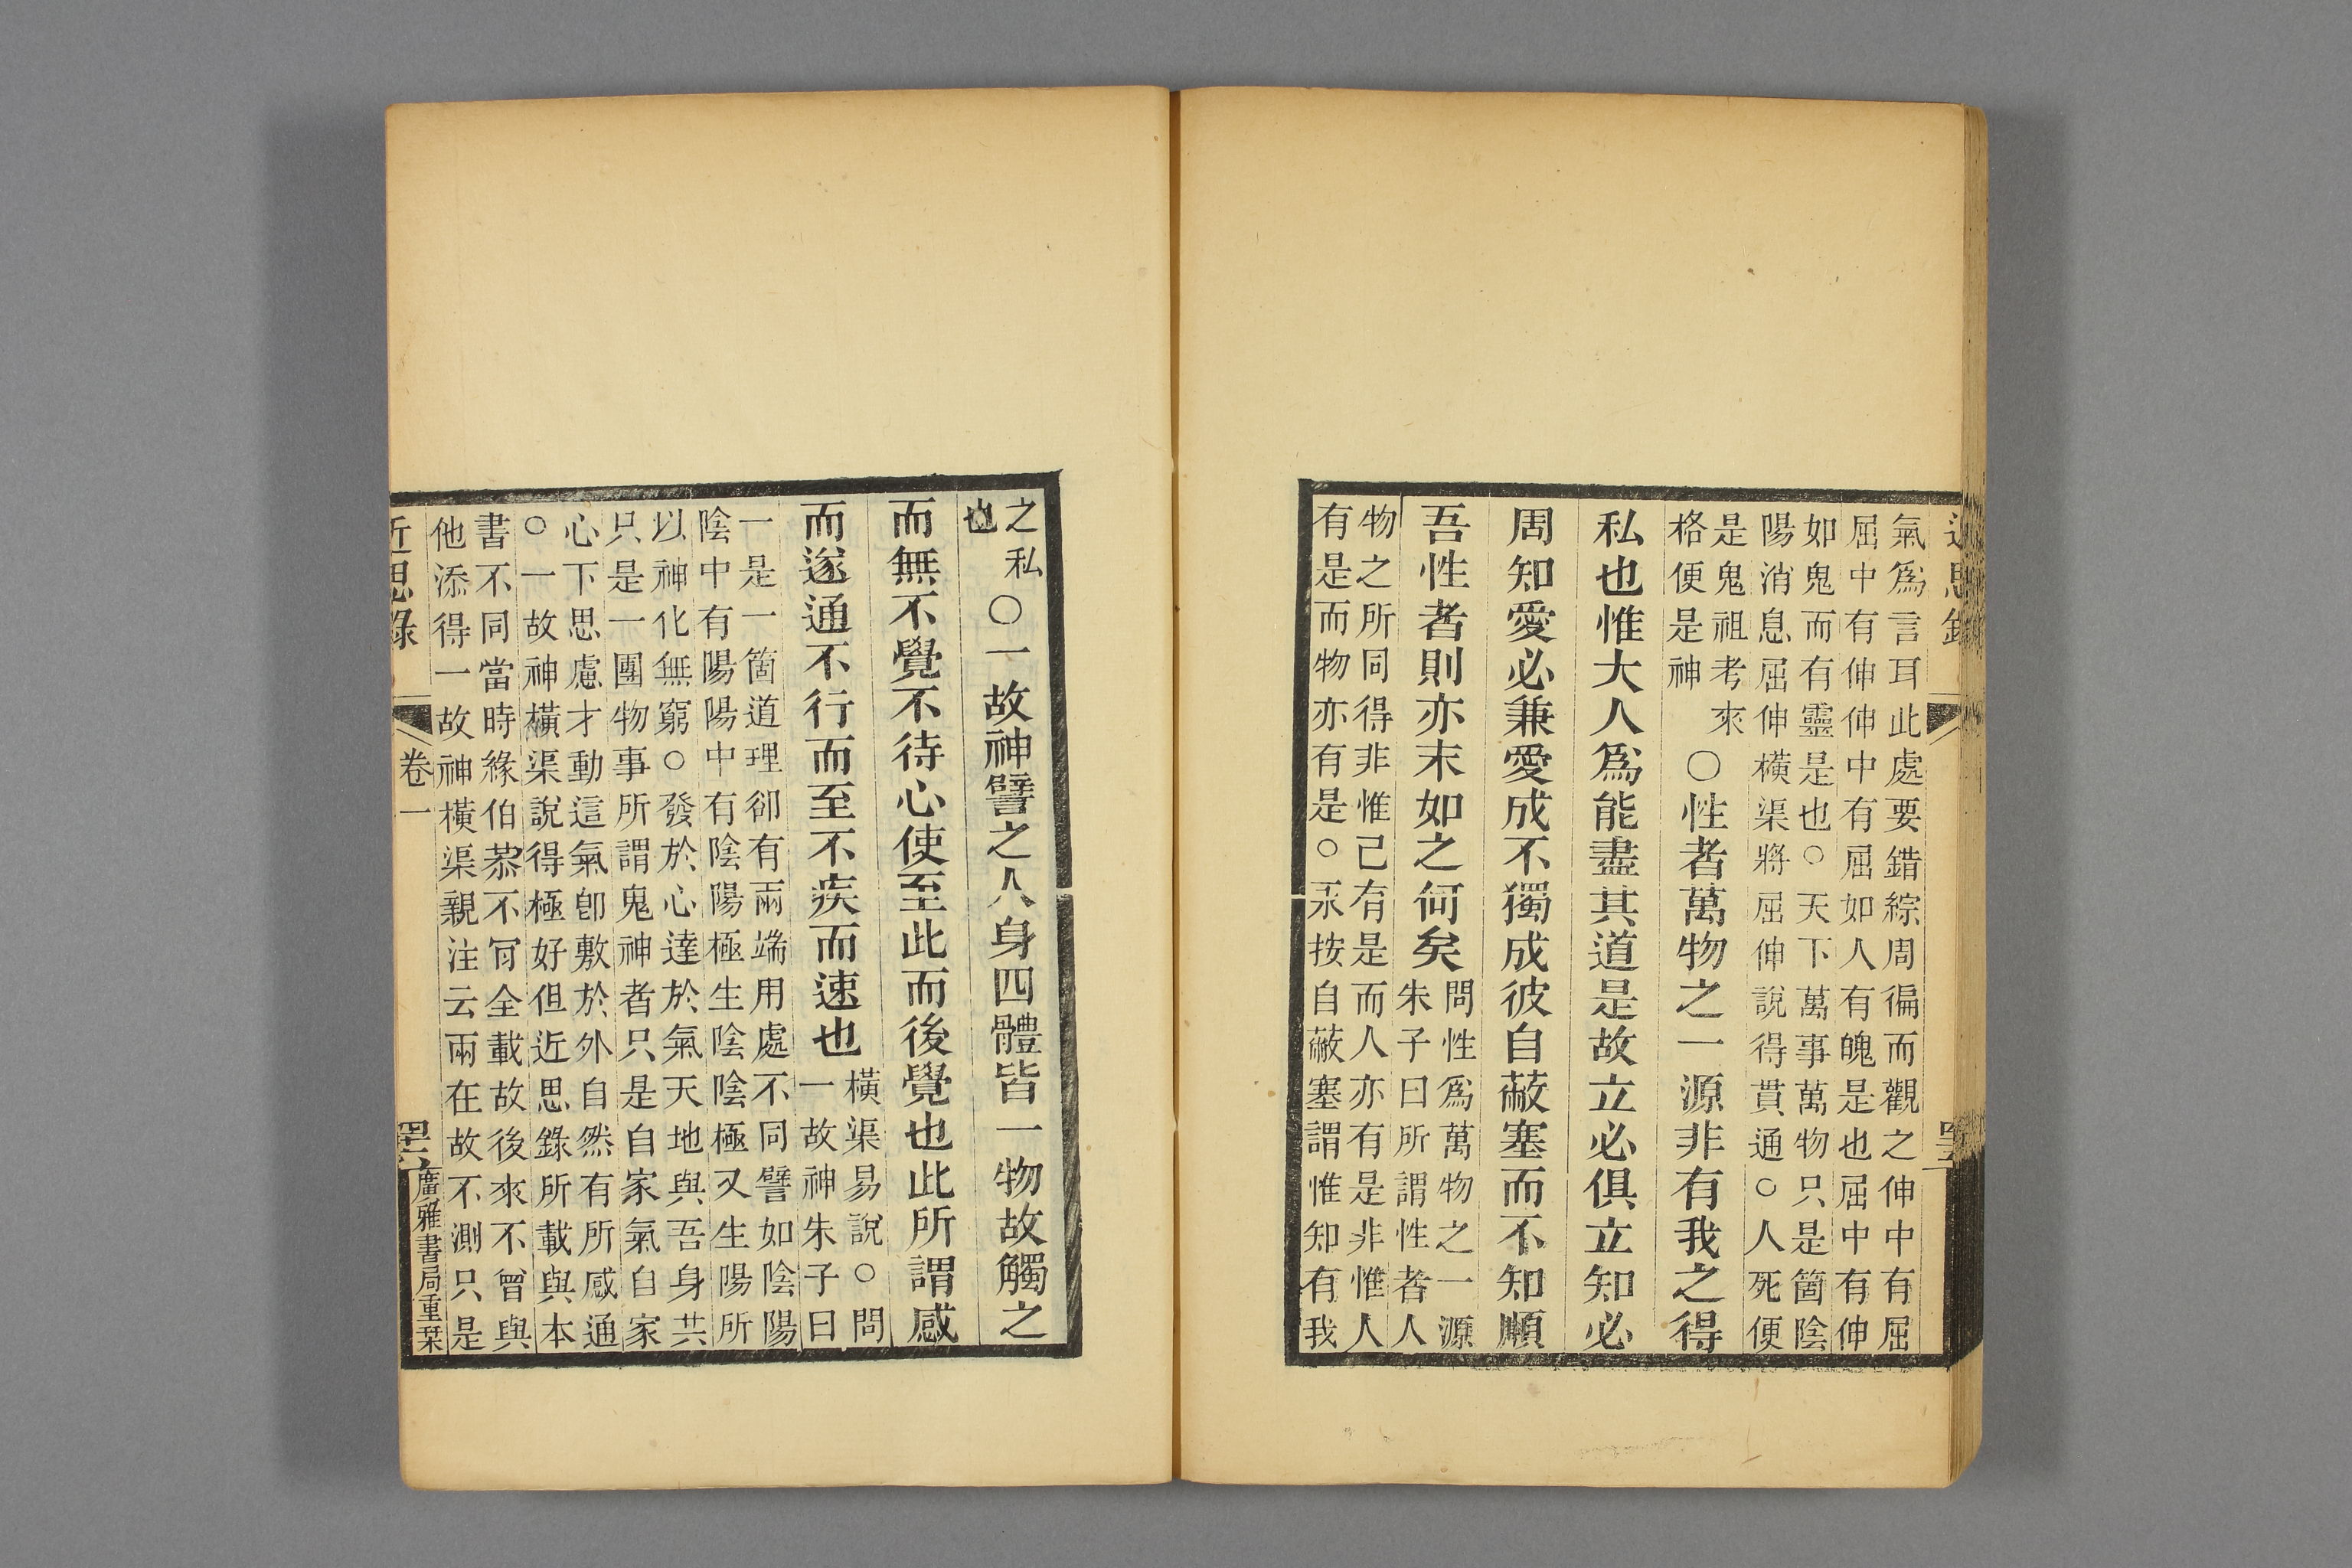 氣爲言耳此處要錯綜周徧而觀之伸中有屈
屈中有伸伸中有屈如人有魄是也屈中有伸
如鬼而有靈是也○天下萬事萬物只是箇陰
陽消息屈伸橫渠將屈伸說得貫通○人死便
是鬼祖考來
格便是神
○性者萬物之一源非有我之得
私也惟大人爲能盡其道是故立必俱立知必
周知愛必兼愛成不獨成彼自蔽塞而不知順
吾性者則亦末如之何矣
問性爲萬物之一源
朱子曰所謂性者人
物之所同得非惟己有是而人亦有是非惟人
有是而物亦有是○永按自蔽塞謂惟知有我
之私
也
○一故神譬之人身四體皆一物故觸之
而無不覺不待心使至此而後覺也此所謂感
而遂通不行而至不疾而速也
橫渠易說○問
一故神朱子曰
一是一箇道理卻有兩端用處不同譬如陰陽
陰中有陽陽中有陰陽極生陰陰極又生陽所
以神化無窮○發於心達於氣天地與吾身共
只是一團物事所謂鬼神者只是自家氣自家
心下思慮才動這氣卽敷於外自然有所感通
○一故神橫渠說得極好但近思錄所載與本
書不同當時緣伯恭不肎全載故後來不曾與
他添得一故神橫渠親注云兩在故不測只是
近思錄
卷一
廣雅書局重栞